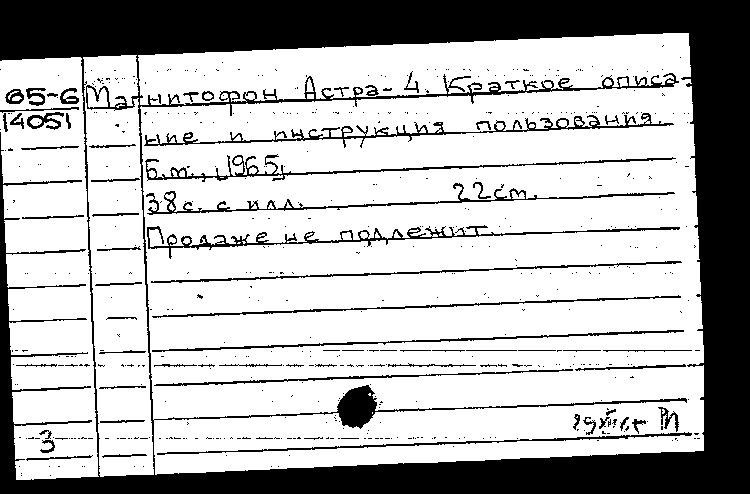 65-6 Магнитофон Астра-4. Краткое описа-
14051
ние и инструкция пользования.
Б.м., [1965].
38 с. с илл. 22 см.
Продаже не подлежит.
3